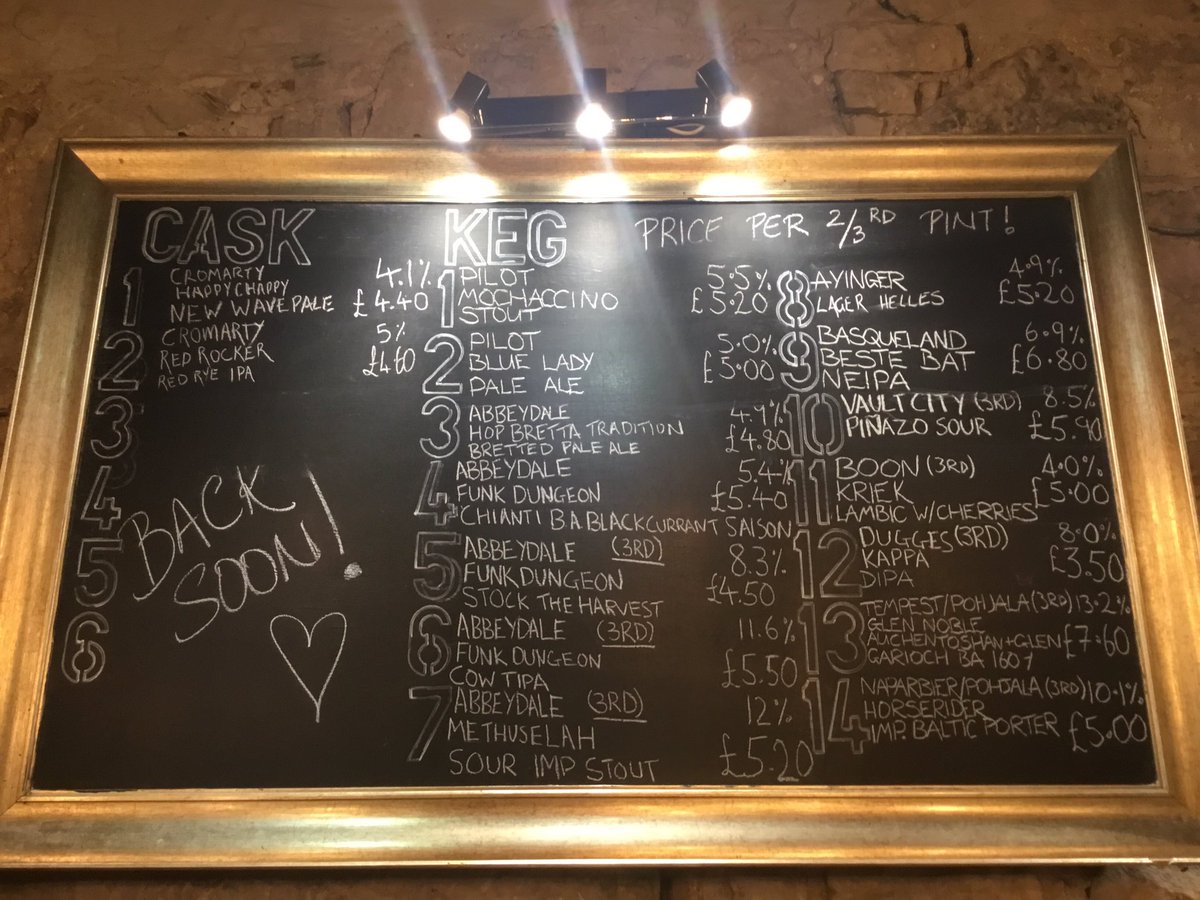 CASK
1 CROMARTY 4.1%
HAPPY CHAPPY
NEW WAVE PALE £4.40
2 CROMARTY 5%
RED ROCKER £4.60
RED RYE IPA
3
4
5
6
BACK
SOON!
KEG PRICE PER 2/3RD PINT!
1 PILOT 5.5%
MOCHACCINO £5.20
STOUT
2 PILOT 5.0%
BLUE LADY £5.00
PALE ALE
3 ABBEYDALE 4.9%
HOP BRETTA TRADITION
BRETTED PALE ALE £4.80
4 ABBEYDALE 5.4%
FUNK DUNGEON £5.40
CHIANTI BA BLACKCURRANT SAISON
5 ABBEYDALE (3RD) 8.3%
FUNK DUNGEON
STOCK THE HARVEST £4.50
6 ABBEYDALE (3RD) 11.6%
FUNK DUNGEON
COW TIPA £5.50
7 ABBEYDALE (3RD) 12%
METHUSELAH
SOUR IMP STOUT £5.20
8 AYINGER 4.9%
LAGER HELLES £5.20
9 BASQUELAND 6.9%
BESTE BAT £6.80
NEIPA
10 VAULT CITY (3RD) 8.5%
PIÑAZO SOUR £5.90
11 BOON (3RD) 4.0%
KRIEK £5.00
LAMBIC W/CHERRIES
12 DUGGES (3RD) 8.0%
KAPPA £3.50
DIPA
13 TEMPEST/POHJALA (3RD) 13.2%
GLEN NOBLE
AUCHENTOSHAN+GLEN £7.60
GARIOCH BA 1607
14 NAPARBIER/POHJALA (3RD) 10.1%
HORSERIDER
IMP. BALTIC PORTER £5.00